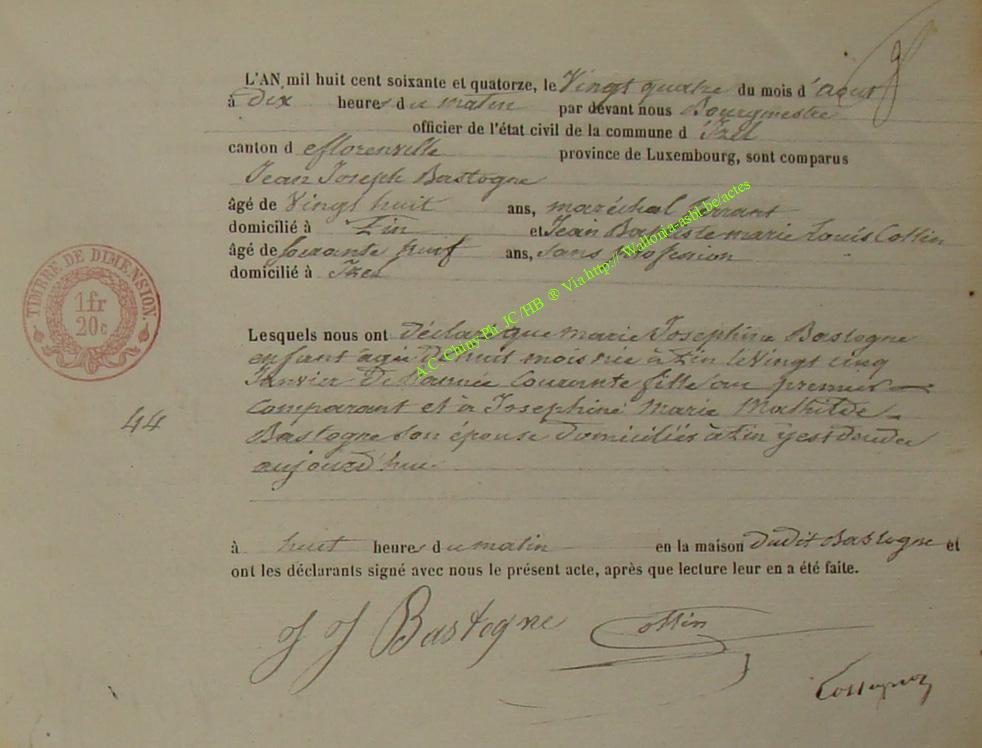 L'AN mil huit cent soixante et quatorze, le Vingt quatre du mois d'aout
à Dix heures du matin par devant nous Bourgmestre
officier de l'état civil de la commune d'Izel
canton de florenville province de Luxembourg, sont comparus
Jean Joseph Bastogne
âgé de Vingt huit ans, maréchal ferrant
domicilié à Pin et Jean Baptiste marie Louis Collin
âgé de soixante neuf ans, sans profession
domicilié à Izel
TIMBRE DE DIMENSION.
1 fr
20 c
Lesquels nous ont déclaré que marie Josephine Bastogne
enfant agée De huit mois née à Pin le vingt cinq
Janvier De l'année Courante fille au premier
Comparant et à Josephine Marie Mathilde
44
Bastogne son épouse Domiciliés à Pin y est décédée
aujourd'hui
à huit heures du matin en la maison Dudit Bastogne et
ont les déclarants signé avec nous le présent acte, après que lecture leur en a été faite.
J J Bastogne Collin
A.C. Chiny Ph. JC /HB ® Via http://Wallonia-asbl.be/actes